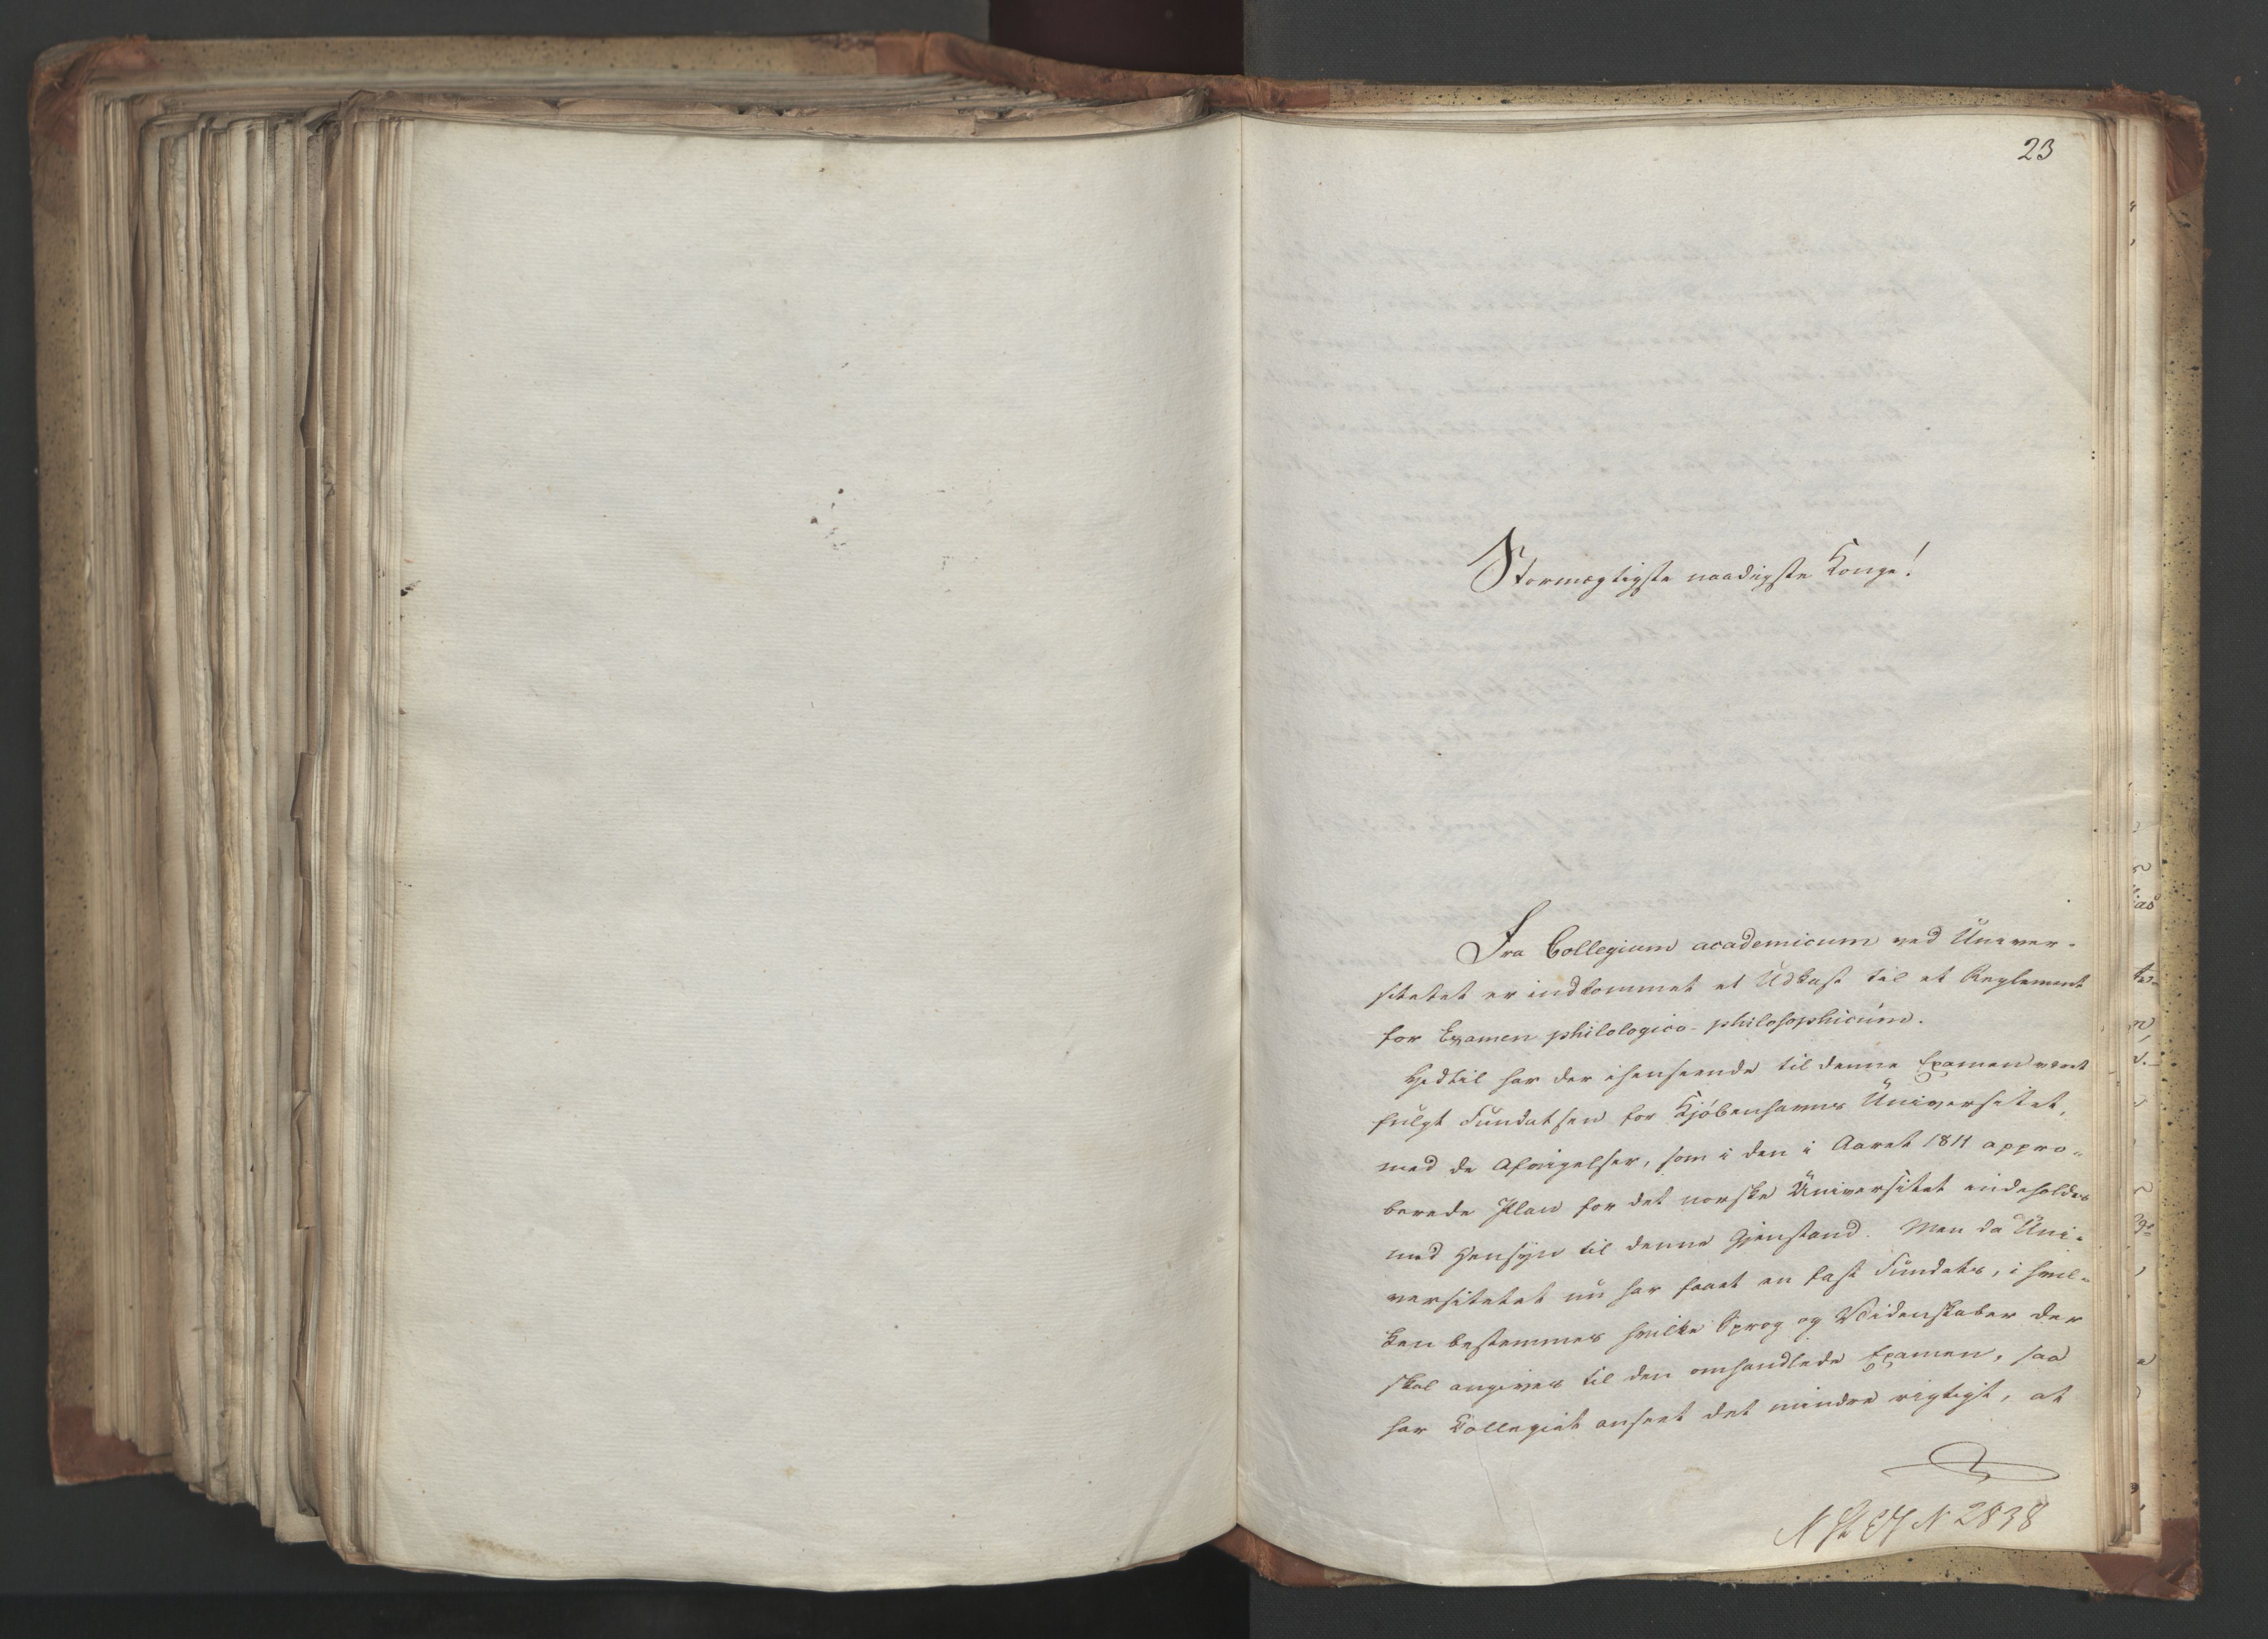 23
Stormægtigste naadigste Konge!
Fra Collegium academicum ved Univer-
sitetet er indkommet et Udkast til et Reglement
for Examen philologico-philosophicum.
Hidtil har der ihenseende til denne Examen været
fulgt Fundatsen for Kjøbenhavns Universitet,
med de Afvigelser, som i den i Aaret 1811 appro-
berede Plan for det norske Universitet indeholdes
med Hensyn til denne Gjenstand. Men da Uni-
versitetet nu har faaet en fast Fundats, i hvil-
ken bestemmes hvilke Sprog og Videnskaber der
skal angives til den omhandlede Examen, saa
har Collegiet anseet det mindre rigtigt, at
N 2838